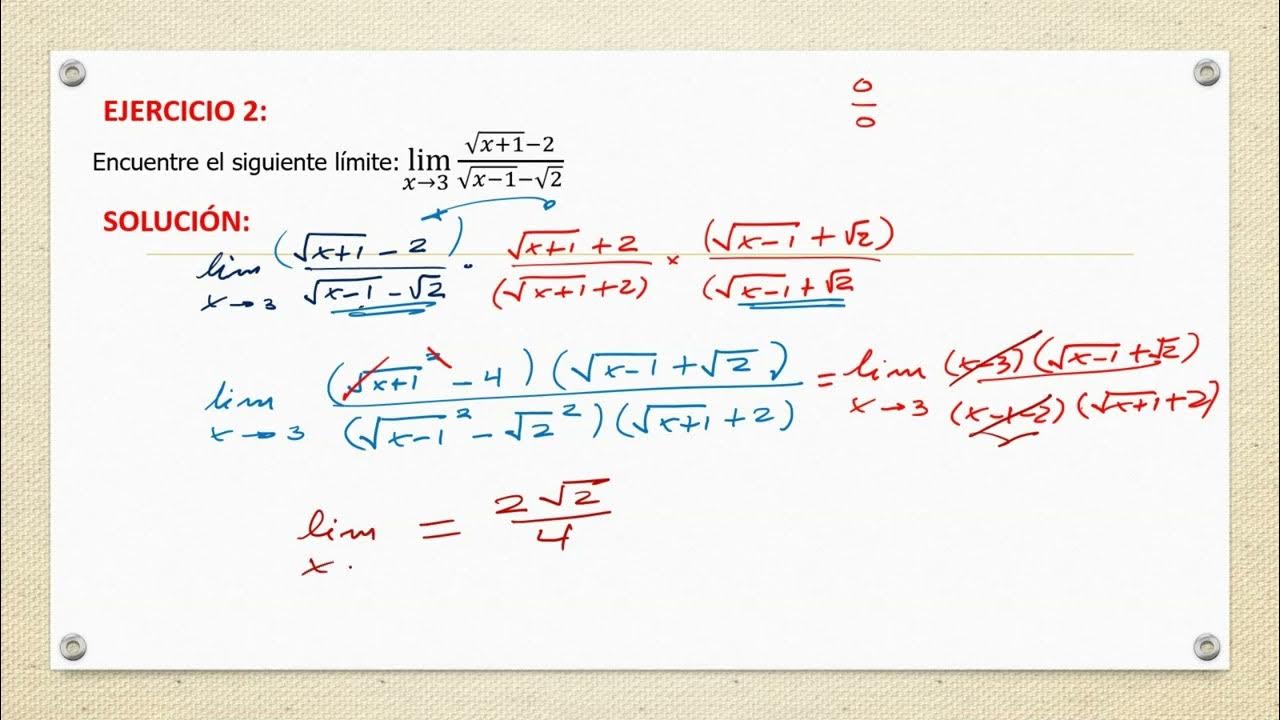 0/0
EJERCICIO 2:
Encuentre el siguiente límite: lim x→3 (√(x+1)−2)/(√(x−1)−√2)
SOLUCIÓN:
lim x→3 (√(x+1) − 2)/(√(x−1) − √2) · (√(x+1) + 2)/((√(x+1) + 2)) × ((√(x−1) + √2))/((√(x−1) + √2
lim x→3 ((√(x+1)² − 4)(√(x−1) + √2))/((√(x−1)² − √2²)(√(x+1) + 2)) = lim x→3 ((x−3)(√(x−1) + √2))/((x−1−2)(√(x+1) + 2))
lim x. = 2√2/4